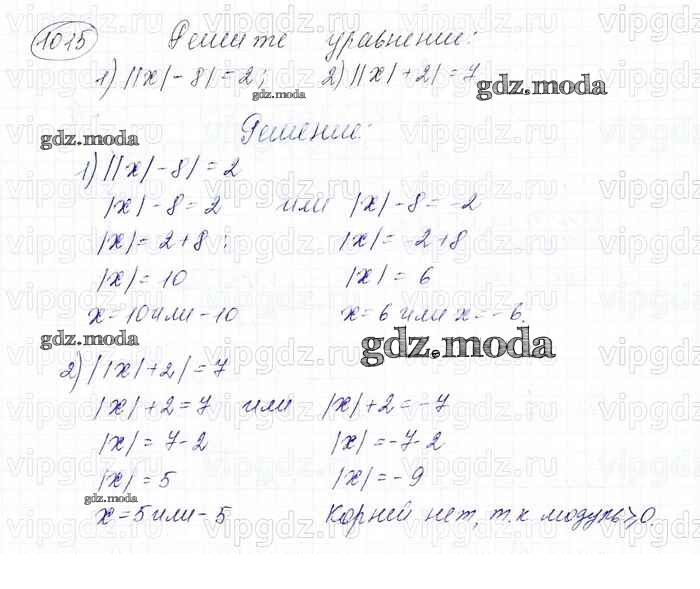 1015 Решите уравнение:
1) ||x|-8|=2; 2) ||x|+2|=7
gdz.moda
gdz.moda
gdz.moda
Решение:
1) ||x|-8|=2
|x|-8=2 или |x|-8=-2
|x|=2+8; |x|=-2+8
|x|=10 |x|=6
x=10 или -10 x=6 или x=-6.
gdz.moda
gdz.moda
2) ||x|+2|=7
|x|+2=7 или |x|+2=-7
|x|=7-2 |x|=-7-2
|x|=5 |x|=-9
gdz.moda
x=5 или -5 Корней нет, т.к модуль ≥0.
vipgdz.ru